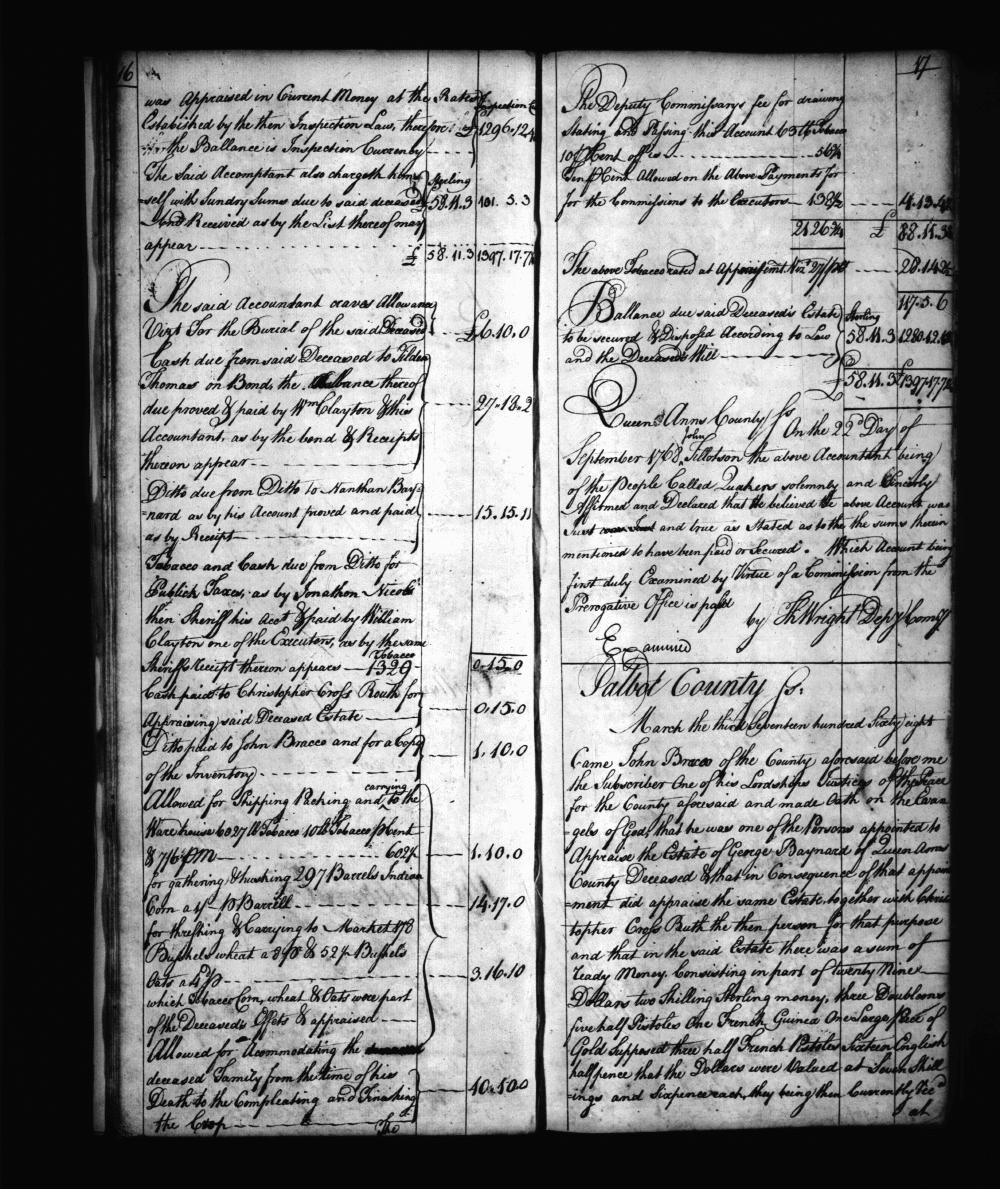 16
was Appraised in Current Money at the Rates Inspection
Established by the then Inspection Law, therefore £ 1296.12.4
the Ballance is Inspection Currency
The said Accomptant also chargeth him Sterling
self with Sundry Sums due to said deceased 58.11.3 101.5.3
And Received as by the List thereof may
appear £ 58.11.3 1397.17.7
The said Accountant craves Allowance
Vizt For the Burial of the said Deceased £6.10.0
Cash due from said Deceased to Tilden
Thomas on Bond the Ballance thereof
due proved & paid by Wm Clayton & this 27.18.2
Accountant, as by the bond & Receipts
thereon appear
Ditto due from Ditto to Nanthan Bay
=nard as by his Account proved and paid 15.15.11
as by Receipt
Tobacco and Cash due from Ditto for
Publick Taxes, as by Jonathon Nicols
then Sheriff his Acct & paid by William
Clayton one of the Executors, as by the same
Tobacco
Sheriffs Receipt thereon appears 1329 0.15.0
Cash paid to Christopher Cross Routh for
Appraising said Deceased Estate 0.15.0
Ditto paid to John Bracco and for a Copy 1.10.0
of the Inventory
carrying
Allowed for Shipping Packing and to the
Warehouse 6027 lb Tobacco 10 lb Tobacco Cent
& 7/6 M 602 1.10.0
for gathering & husking 297 Barrels Indian
Corn a 1/ Barrell 14.17.0
for threshing & Carrying to Market 178
Bushels wheat a & 52 Bushels
Oats a 4d 3.16.10
which Tobacco Corn, wheat & Oats were part
of the Deceased's Effets & appraised
Allowed for Acommodating the
deceased Family from the time of his
Death to the Compleating and Finishing 40.10.0
the Crop
The
17
The Deputy Commissary's fee for drawing
Stating and Passing this Account 65 lb Tobacco
10 Cent off is 56
Ten Cent Allowed on the Above Payments for
for the Commissions to the Executors 138 4.13.4
2126 £ 88.11.3
The above Tobacco rated at Appraisment 28.14
117.5.6
Ballance due said Deceased's Estate Sterling
to be secured & Disposed According to Law 58.11.3 1280.12
and the Deceased's Will
£ 58.11.3 £1397.17.7
Queen Anns County ss On the 22d Day of
John
September 1768 Tillotson the above Accountant being
of the People Called Quakers solemnly and Sincerly
Affirmed and Declared that he believed the above Account was
Just and true as Stated as to the the sums therein
mentioned to have been paid or Secured. Which Account being
first duly Examined by Virtue of a Commission from the
Prerogative Office is passd
by Th Wright Depy Comy
Examined
Talbot County ss:
March the third Seventeen hundred Sixty eight
Came John Bracco of the County aforesaid before me
the Subscriber One of his Lordships Justices of the Peace
for the County aforesaid and made Oath on the Evan
=gels of God, that he was one of the Persons appointed to
Appraise the Estate of George Baynard of Queen Anns
County Deceased & that in Consequence of that appoint
=ment did appraise the same Estate, together with Chris
topher Cross Ruth the then person for that purpose
and that in the said Estate there was a sum of
ready Money. Consisting in part of twenty Nine
Dollars two Shilling Sterling money, three Doubloons
five half Pistoles One French Guinea One Large piece of
Gold Supposed three half French Pistoles Sixteen English
halfpence that the Dollars were Valued at Seven Shill
=ings and Sixpence each, they being then Currently
at